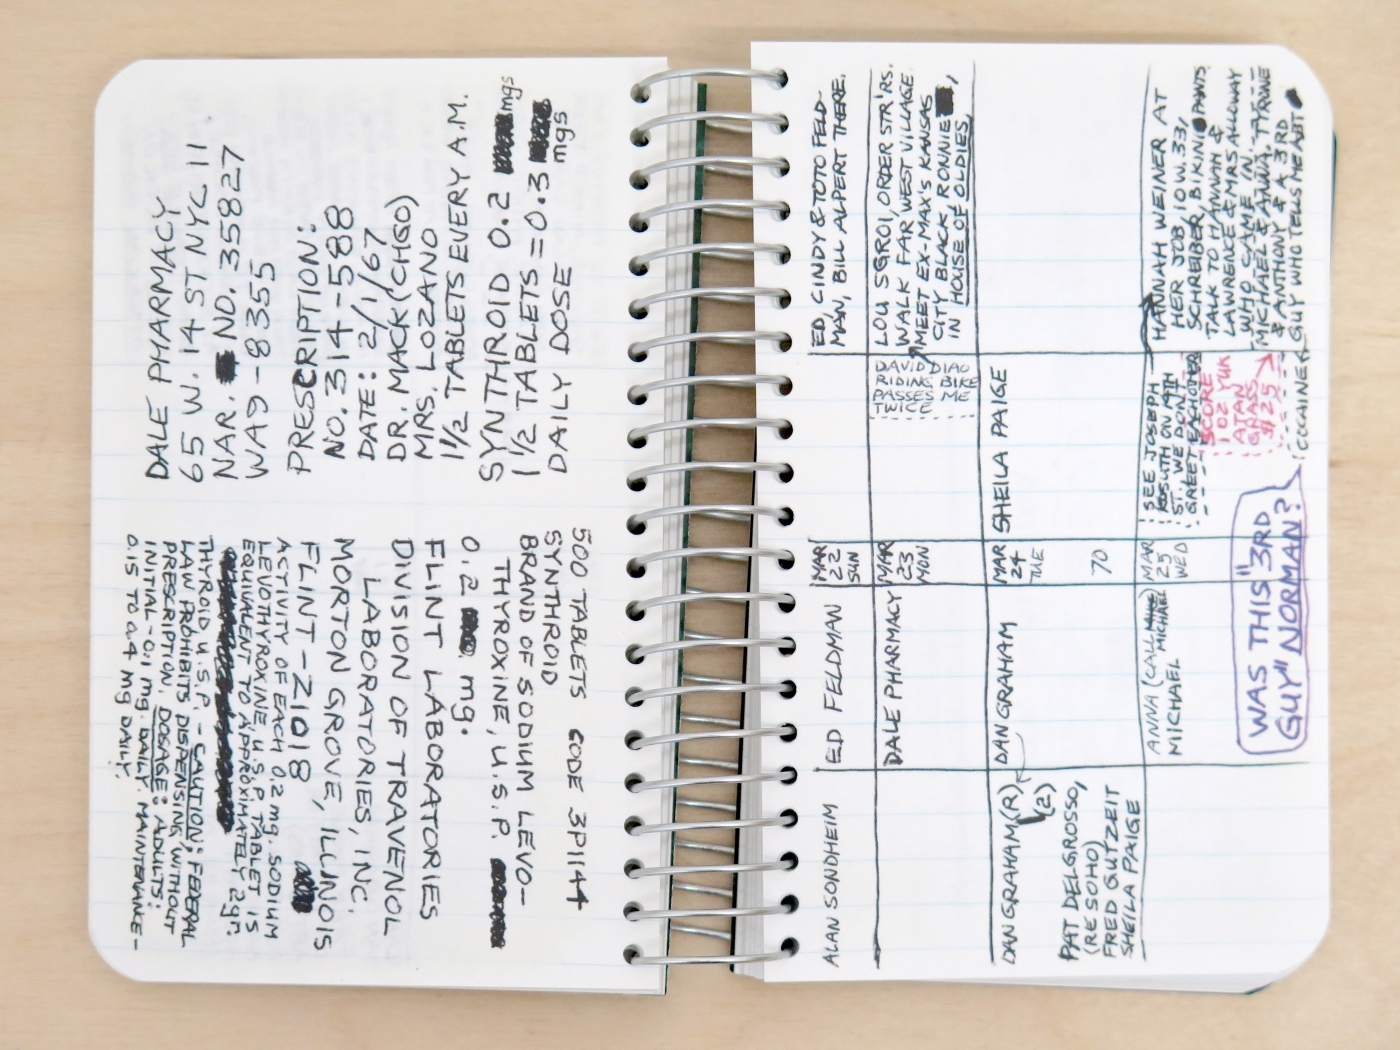 DALE PHARMACY
65 W. 14 ST NYC 11
NAR. NO. 35827
WA9-8355
PRESCRIPTION:
NO. 314-588
DATE: 2/1/67
DR. MACK (CHGO)
MRS. LOZANO
1 1/2 TABLETS EVERY A.M.
SYNTHROID 0.2 mgs
1 1/2 TABLETS = 0.3 mgs
DAILY DOSE
500 TABLETS CODE 3P1144
SYNTHROID
BRAND OF SODIUM LEVO-
THYROXINE, U.S.P.
0.2 mg.
FLINT LABORATORIES
DIVISION OF TRAVENOL
LABORATORIES, INC.
MORTON GROVE, ILLINOIS
FLINT-Z1018
ACTIVITY OF EACH 0.2 mg. SODIUM
LEVOTHYROXINE, U.S.P. TABLET IS
EQUIVALENT TO APPROXIMATELY 2gr.
THYROID U.S.P. - CAUTION: FEDERAL
LAW PROHIBITS DISPENSING WITHOUT
PRESCRIPTION. DOSAGE: ADULTS:
INITIAL-0.1 mg. DAILY. MAINTENANCE-
0.15 TO 0.4 Mg DAILY.
ALAN SONDHEIM
ED FELDMAN
MAR
22
SUN
ED, CINDY & TOTO FELD-
MAN, BILL ALPERT THERE.
DALE PHARMACY
MAR
23
MON
DAVID DIAO
RIDING BIKE
PASSES ME
TWICE
LOU SGROI, ORDER STR'RS.
WALK FAR WEST VILLAGE.
MEET EX-MAX'S KANSAS
CITY BLACK RONNIE,
IN HOUSE OF OLDIES
DAN GRAHAM (R)
(2)
PAT DELGROSSO,
(RE SOHO)
FRED GUTZEIT
SHEILA PAIGE
DAN GRAHAM
MAR
24
TUE
70
SHEILA PAIGE
ANNA (CALL
MICHAEL MICHAEL
MAR
25
WED
SEE JOSEPH
KOSUTH ON
ST. WE DON'T
GREET EACH OTHER
SCORE
1 OZ YUK
ATAN
GRASS
$25
HANNAH WEINER AT
HER JOB, 10 W. 33,
SCHREIBER, BIKINI PANTS
TALK TO HANNAH &
LAWRENCE & MRS ALLOWAY
WHO CAME IN.
MICHAEL & ANNA, TYRONE
& ANTHONY & A 3RD
GUY WHO TELLS ME ABT
(COCAINE)
WAS THIS "3RD
GUY" NORMAN?